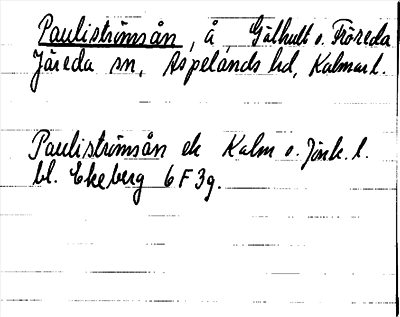 Pauliströmsån, å, Gålhult o. Fröreda
Järeda sn, Aspelands hd, Kalmar l.
Pauliströmsån ek Kalm o. Jönk. l.
bl. Ekeberg 6 F 3g.